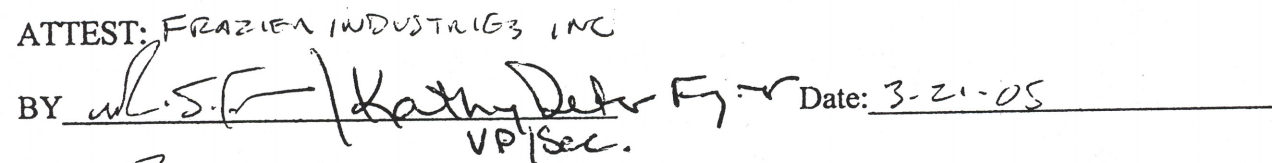 ATTEST: FRAZIER INDUSTRIES INC
BY / Kathy Date: 3-21-05
VP/Sec.